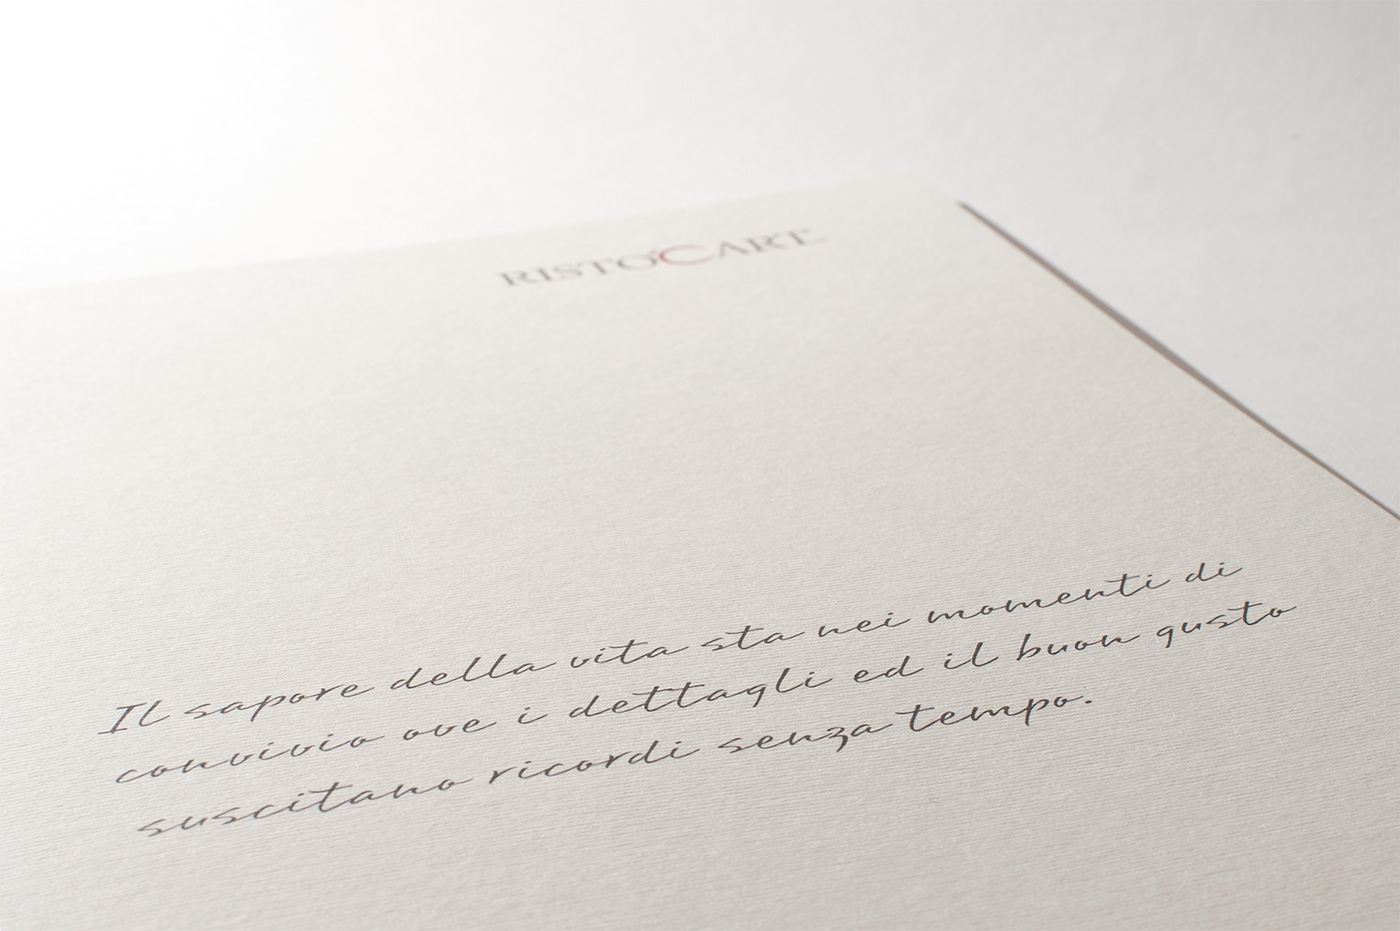 RISTO'CART
Il sapore della vita sta nei momenti di
convivio ove i dettagli ed il buon gusto
suscitano ricordi senza tempo.